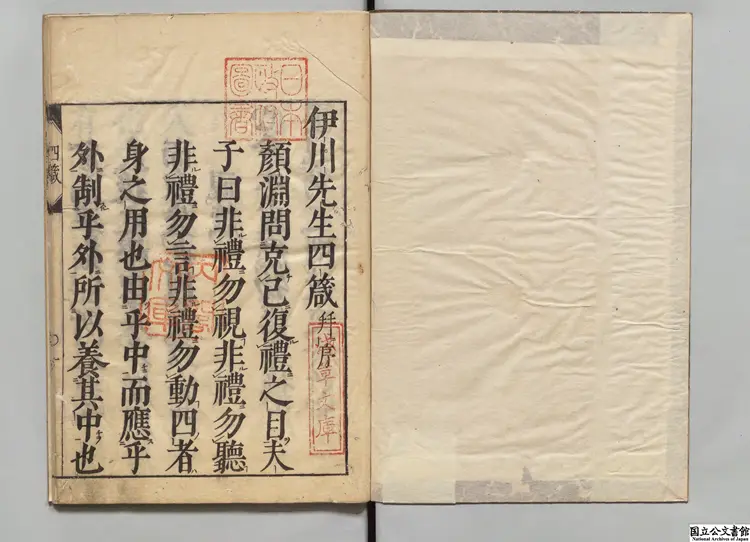 伊川先生四箴幷序
顏淵問克己復禮之目夫
子曰非禮勿視非禮勿聽
非禮勿言非禮勿動四者
身之用也由乎中而應乎
外制乎外所以養其中也
四箴
日本
政府
圖書
文庫
国立公文書館
National Archives of Japan